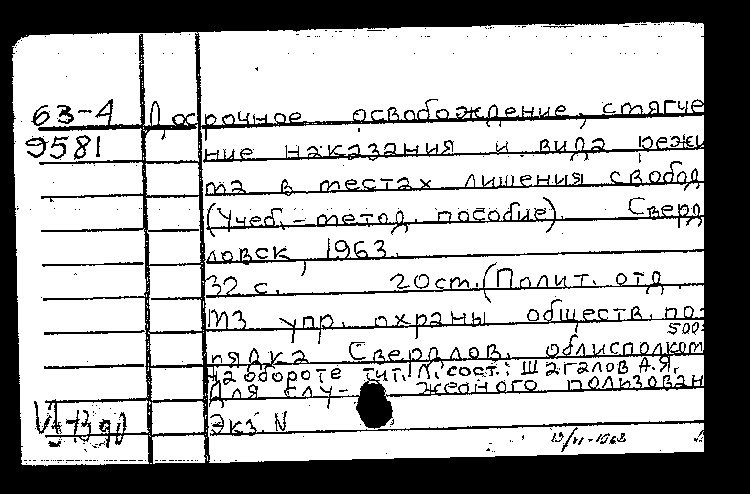 63-4 Досрочное освобождение, стягче
9581 ние наказания и вида режи
ма в местах лишения свобод
(Учеб.-метод. пособие). Сверд
ловск, 1963.
32 с. 20см. (Полит. отд.
МЗ упр. охраны обществ. по-
500э
рядка Свердлов. облисполком
На обороте тит. л. сост.: Шагалов А.Я.
Для слу- жебного пользован
Экз. N